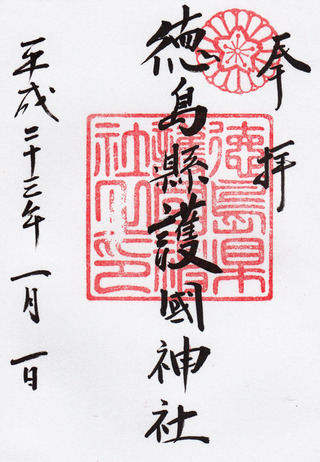 奉拝
徳島縣護國神社
徳島県護国神社之印
平成二十三年一月一日